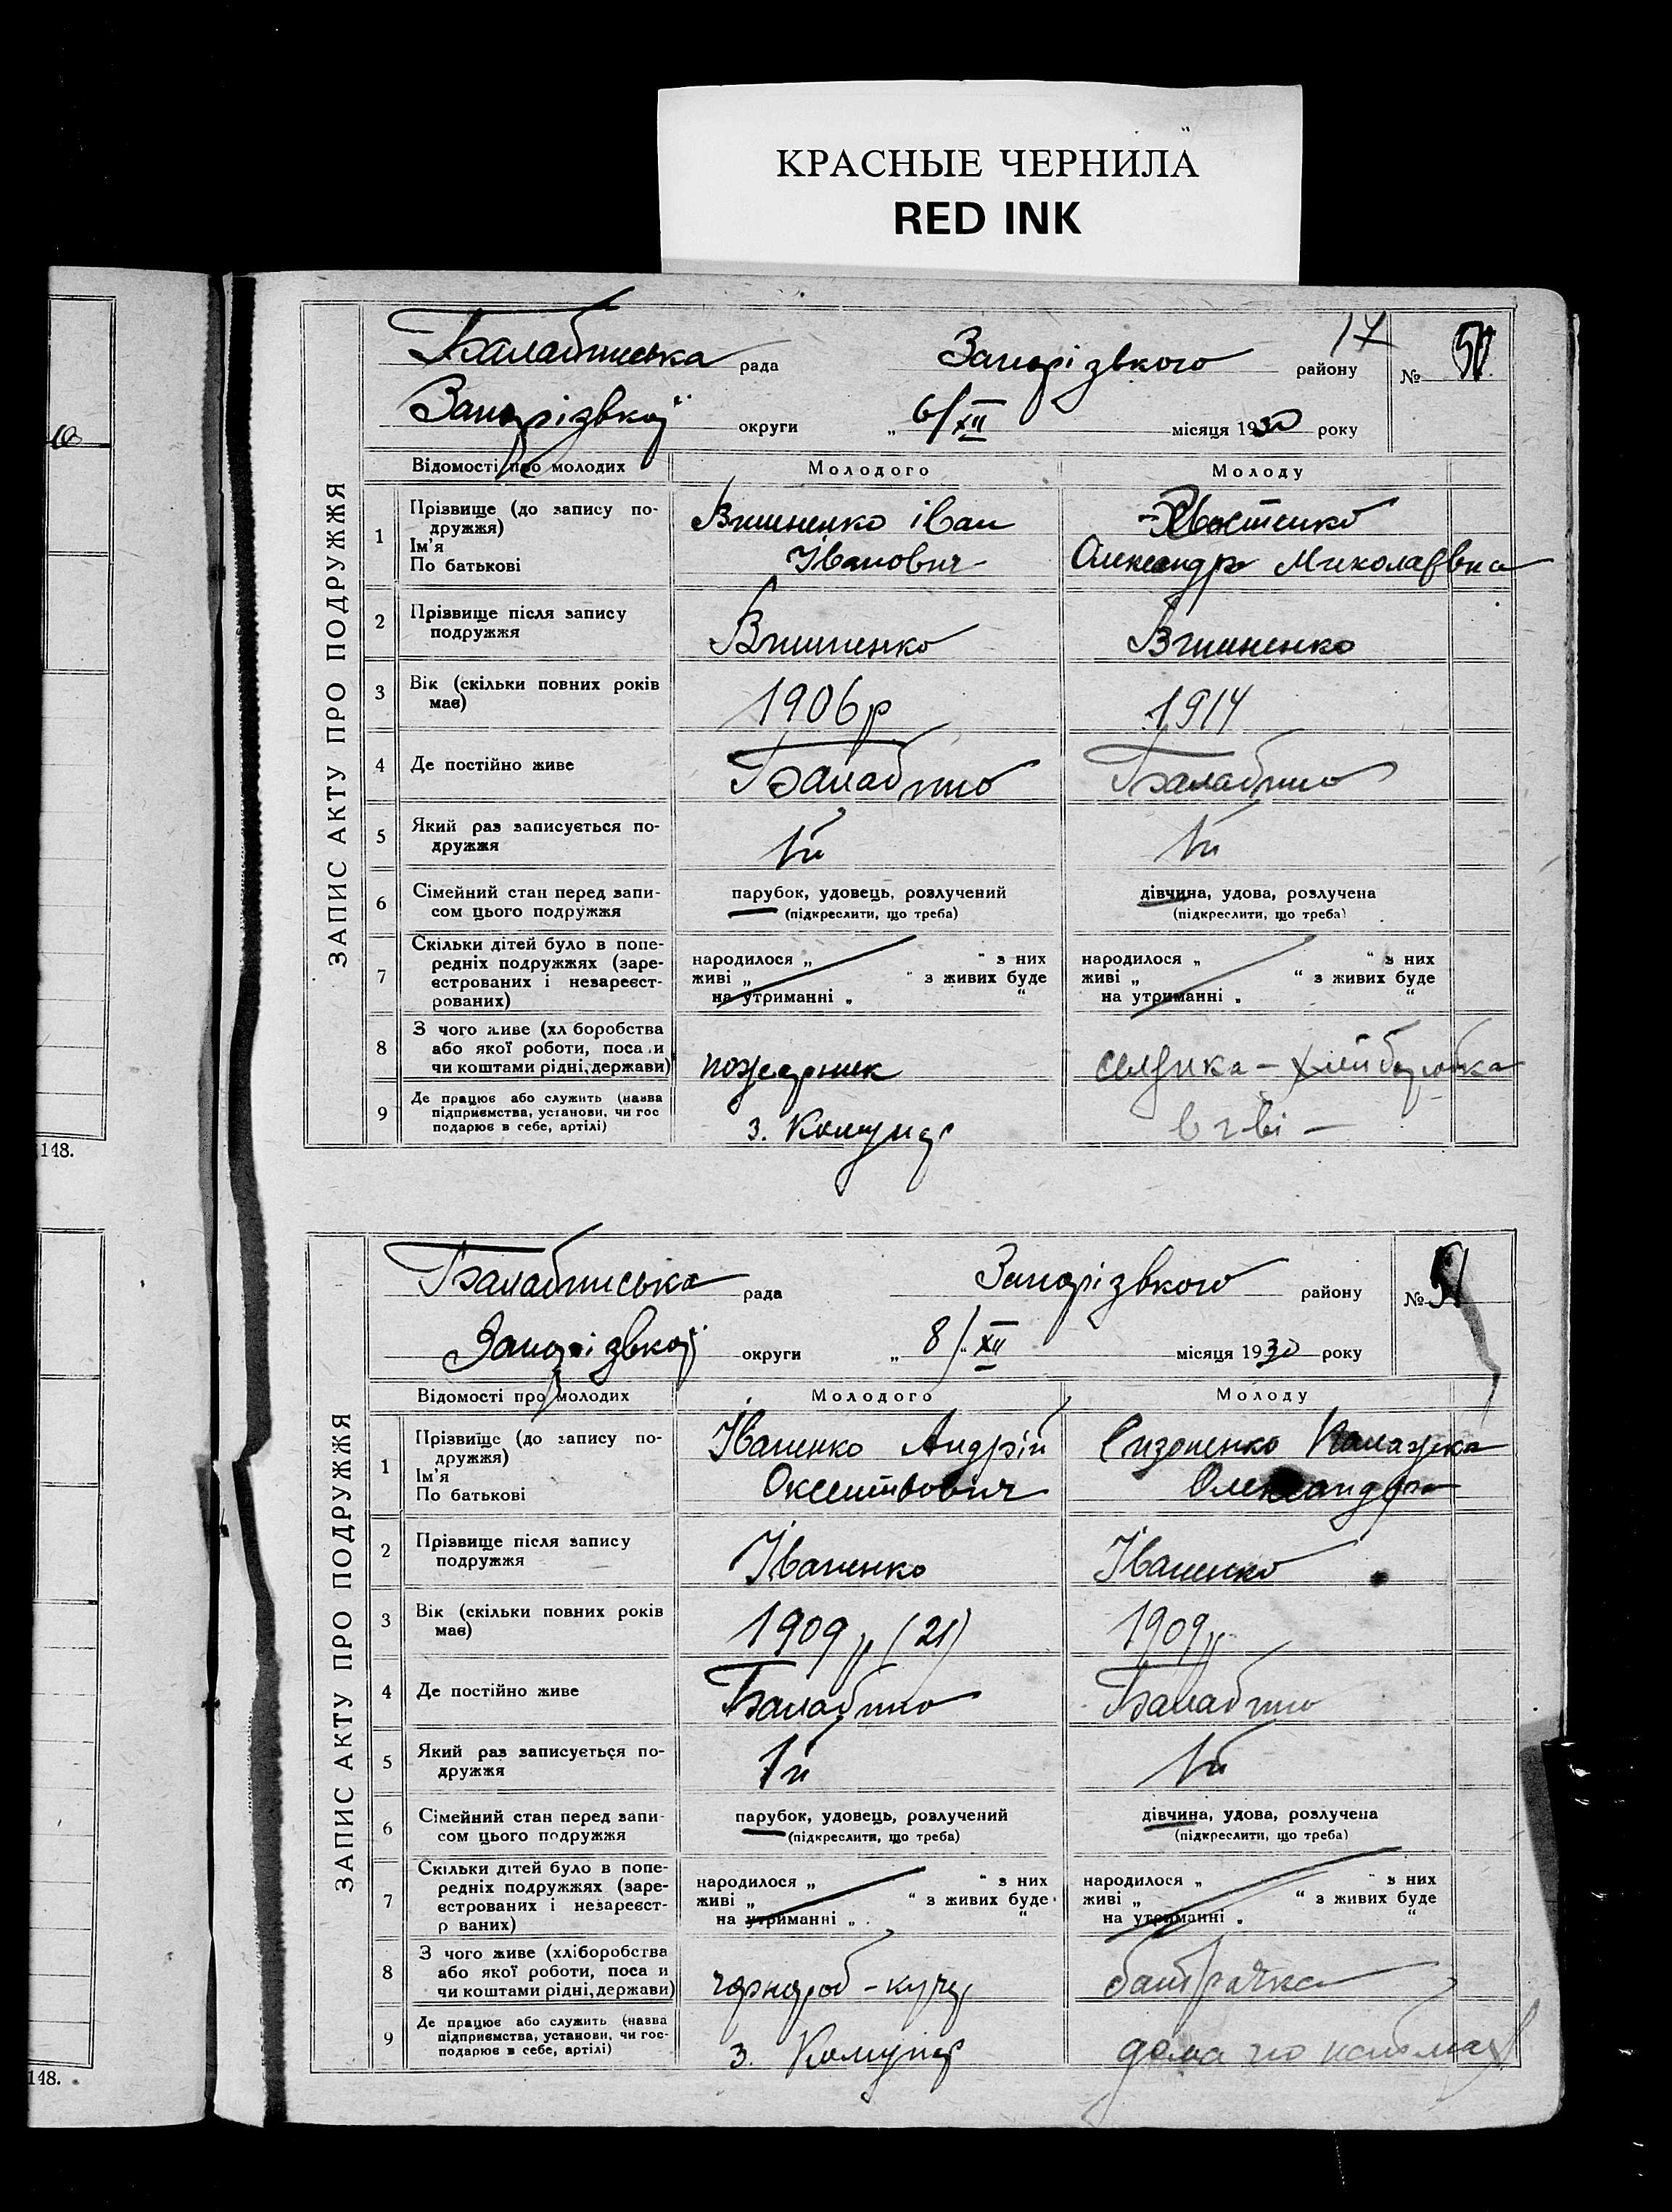 КРАСНЫЕ ЧЕРНИЛА
RED INK
17
Балабинська рада Запорізького району № 50
Запорізької округи „ 6/XII місяця 1930 року
ЗАПИС АКТУ ПРО ПОДРУЖЖЯ
Відомості про молодих Молодого Молоду
1 Прізвище (до запису по-
дружжя)
Ім'я
По батькові
Вишненко іван
Іванович
Хвостенко
Олександра Миколаївна
2 Прізвище після запису
подружжя
Вишненко Вишненко
3 Вік (скільки повних років
має)
1906р 1914
4 Де постійно живе Балабино Балабино
5 Який раз записується по-
дружжя
1й 1й
6 Сімейний стан перед запи-
сом цього подружжя
парубок, удовець, розлучений
(підкреслити, що треба)
дівчина, удова, розлучена
(підкреслити, що треба)
7 Скільки дітей було в попе-
редніх подружжях (заре-
єстрованих і незареєст-
рованих)
народилося „ “ з них
живі „ “ з живих буде
на утриманні „ “
народилося „ “ з них
живі „ “ з живих буде
на утриманні „ “
8 З чого живе (хл боробства
або якої роботи, поса и
чи коштами рідні, держави)
пожарник
9 Де працює або служить (назва
підприємства, установи, чи гос
подарює в себе, артілі)
з. Комунар
148.
Балабинська рада Запорізького району № 51
Запорізької округи „ 8/XII місяця 1930 року
ЗАПИС АКТУ ПРО ПОДРУЖЖЯ
Відомості про молодих Молодого Молоду
1 Прізвище (до запису по-
дружжя)
Ім'я
По батькові
Іваненко Андрій
Оксентьович
Сизоненко Палажка
Олександр
2 Прізвище після запису
подружжя
Іваненко Іваненко
3 Вік (скільки повних років
має)
1909р (21) 1909р
4 Де постійно живе Балабино Балабино
5 Який раз записується по-
дружжя
1й 1й
6 Сімейний стан перед запи-
сом цього подружжя
парубок, удовець, розлучений
(підкреслити, що треба)
дівчина, удова, розлучена
(підкреслити, що треба)
7 Скільки дітей було в попе-
редніх подружжях (заре-
єстрованих і незареєст-
р ваних)
народилося „ “ з них
живі „ “ з живих буде
на утриманні „ “
народилося „ “ з них
живі „ “ з живих буде
на утриманні „ “
8 З чого живе (хліборобства
або якої роботи, поса и
чи коштами рідні, держави)
чорнороб - батрачка
9 Де працює або служить (назва
підприємства, установи, чи гос-
подарює в себе, артілі)
з. Комунар дома по
148.